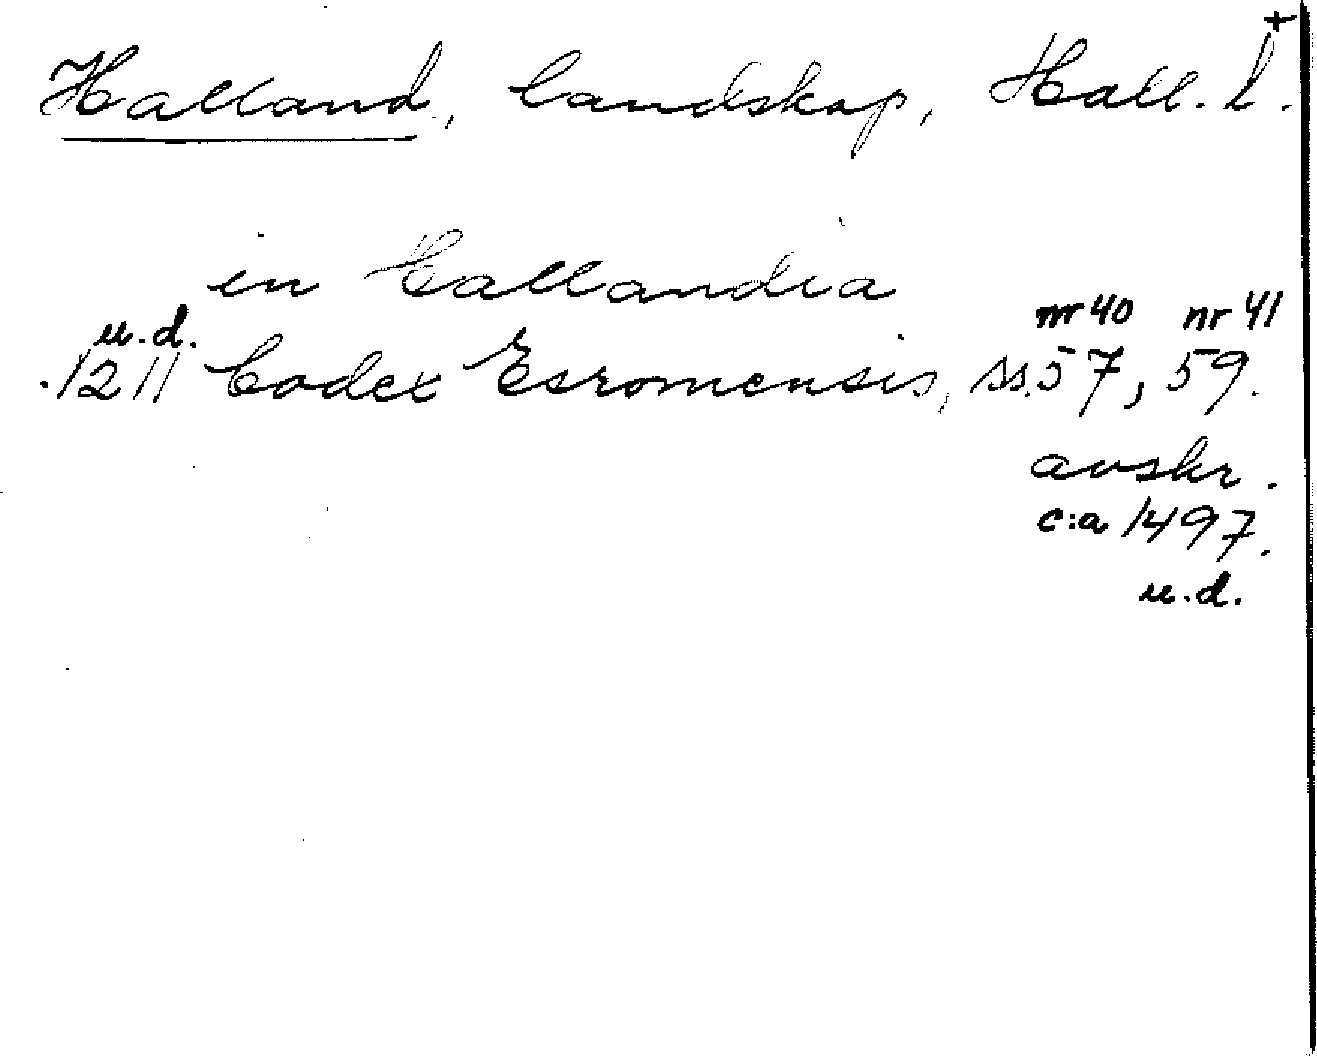 Halland, landskap, Hall. l.+
in Hallandia
u.d. nr 40 nr 41
1211 Codex Esromensis, ss. 57, 59.
avskr.
c:a 1497.
u.d.